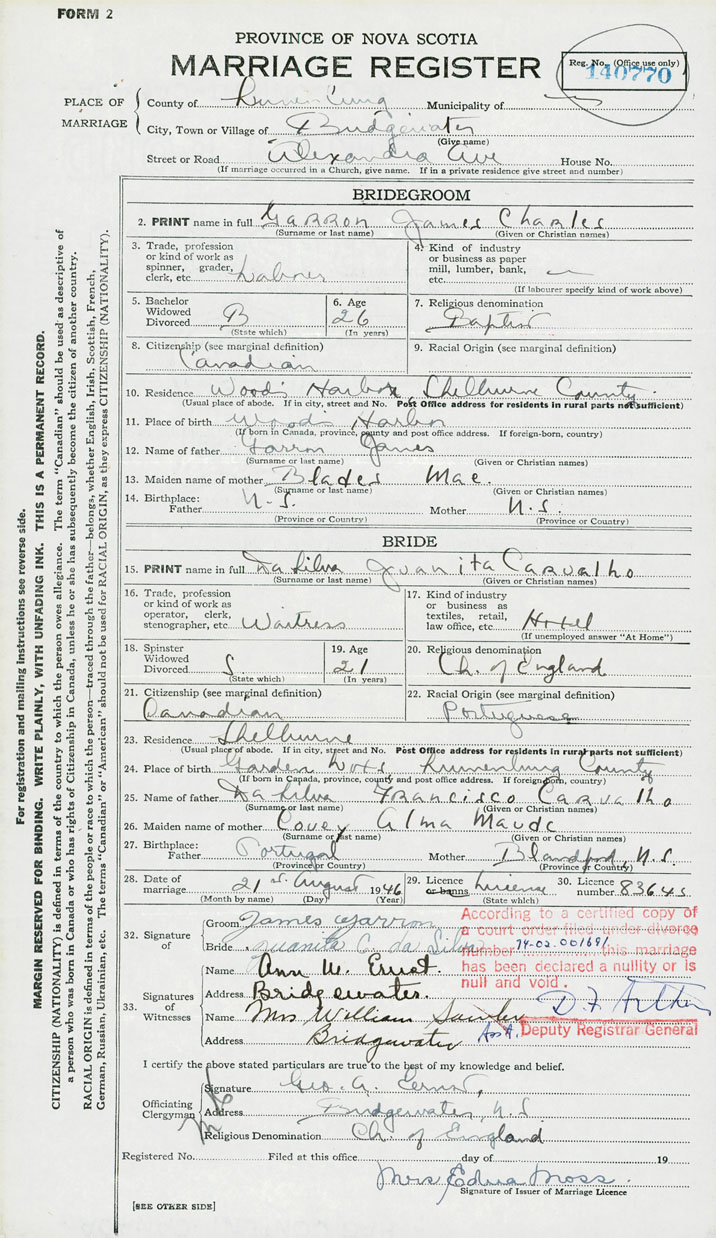 FORM 2
PROVINCE OF NOVA SCOTIA
MARRIAGE REGISTER
Reg. No. (Office use only)
140770
PLACE OF MARRIAGE
County of Lunenburg Municipality of
City, Town or Village of Bridgewater
(Give name)
Street or Road Alexandra Ave House No.
(If marriage occurred in a Church, give name. If in a private residence give street and number)
BRIDEGROOM
2. PRINT name in full Garron James Charles
(Surname or last name) (Given or Christian names)
3. Trade, profession or kind of work as spinner, grader, clerk, etc. Labourer
4. Kind of industry or business as paper mill, lumber, bank, etc.
(If labourer specify kind of work above)
5. Bachelor Widowed Divorced B
(State which)
6. Age 26
(In years)
7. Religious denomination
Baptist
8. Citizenship (see marginal definition)
Canadian
9. Racial Origin (see marginal definition)
10. Residence Wood's Harbor, Shelburne County
(Usual place of abode. If in city, street and No. Post Office address for residents in rural parts not sufficient)
11. Place of birth Woods Harbor
(If born in Canada, province, county and post office address. If foreign-born, country)
12. Name of father Garron James
(Surname or last name) (Given or Christian names)
13. Maiden name of mother Blades Mae.
(Surname or last name) (Given or Christian names)
14. Birthplace: Father N.S. Mother N.S.
(Province or Country) (Province or Country)
BRIDE
15. PRINT name in full Da Silva Juanita Carvalho
(Surname or last name) (Given or Christian names)
16. Trade, profession or kind of work as operator, clerk, stenographer, etc. Waitress
17. Kind of industry or business as textiles, retail, law office, etc. Hotel
(If unemployed answer "At Home")
18. Spinster Widowed Divorced S.
(State which)
19. Age 21
(In years)
20. Religious denomination
Ch. of England
21. Citizenship (see marginal definition)
Canadian
22. Racial Origin (see marginal definition)
Portuguese
23. Residence Shelburne
(Usual place of abode. If in city, street and No. Post Office address for residents in rural parts not sufficient)
24. Place of birth Garden Lots, Lunenburg County
(If born in Canada, province, county and post office address. If foreign-born, country)
25. Name of father Da Silva Francisco Carvalho
(Surname or last name) (Given or Christian names)
26. Maiden name of mother Covey Alma Maude
(Surname or last name) (Given or Christian names)
27. Birthplace: Father Portugal Mother Blandford, N.S.
(Province or Country) (Province or Country)
28. Date of marriage 21st August 1946
(Month by name) (Day) (Year)
29. Licence or banns Licence
(State which)
30. Licence number 83645
32. Signature of
Groom James Garron
Bride Juanita C. da Silva
According to a certified copy of
a court order filed under divorce
number 74-02-001691 this marriage
has been declared a nullity or is
null and void.
Deputy Registrar General
33. Signatures of Witnesses
Name Ann W. Ernst.
Address Bridgewater.
Name Mrs William
Address Bridgewater
I certify the above stated particulars are true to the best of my knowledge and belief.
Officiating Clergyman
Signature Geo. A. Ernst,
Address Bridgewater, N.S.
Religious Denomination Ch. of England
Registered No. Filed at this office day of 19
Mrs Edna Moss.
Signature of Issuer of Marriage Licence
[SEE OTHER SIDE]
For registration and mailing instructions see reverse side.
MARGIN RESERVED FOR BINDING. WRITE PLAINLY, WITH UNFADING INK. THIS IS A PERMANENT RECORD.
CITIZENSHIP (NATIONALITY) is defined in terms of the country to which the person owes allegiance. The term "Canadian" should be used as descriptive of
a person who was born in Canada or who has rights of Citizenship in Canada, unless he or she has subsequently become the citizen of another country.
RACIAL ORIGIN is defined in terms of the people or race to which the person—traced through the father—belongs, whether English, Irish, Scottish, French,
German, Russian, Ukrainian, etc. The terms "Canadian" or "American" should not be used for RACIAL ORIGIN, as they express CITIZENSHIP (NATIONALITY).